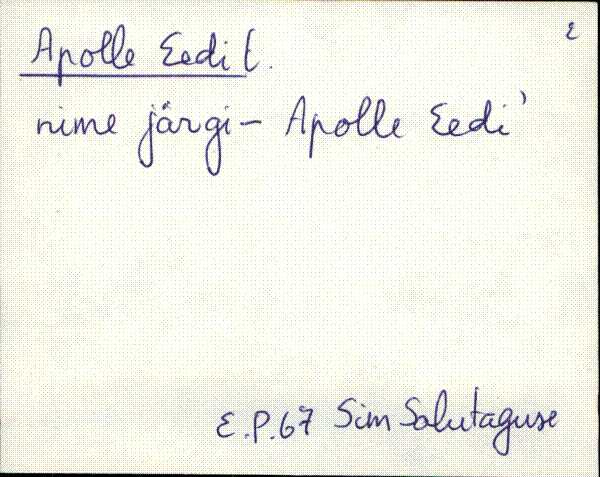 2
Apolle Eedi t.
nime järgi - Apolle Eedi'
E.P. 67 Sim Salutaguse